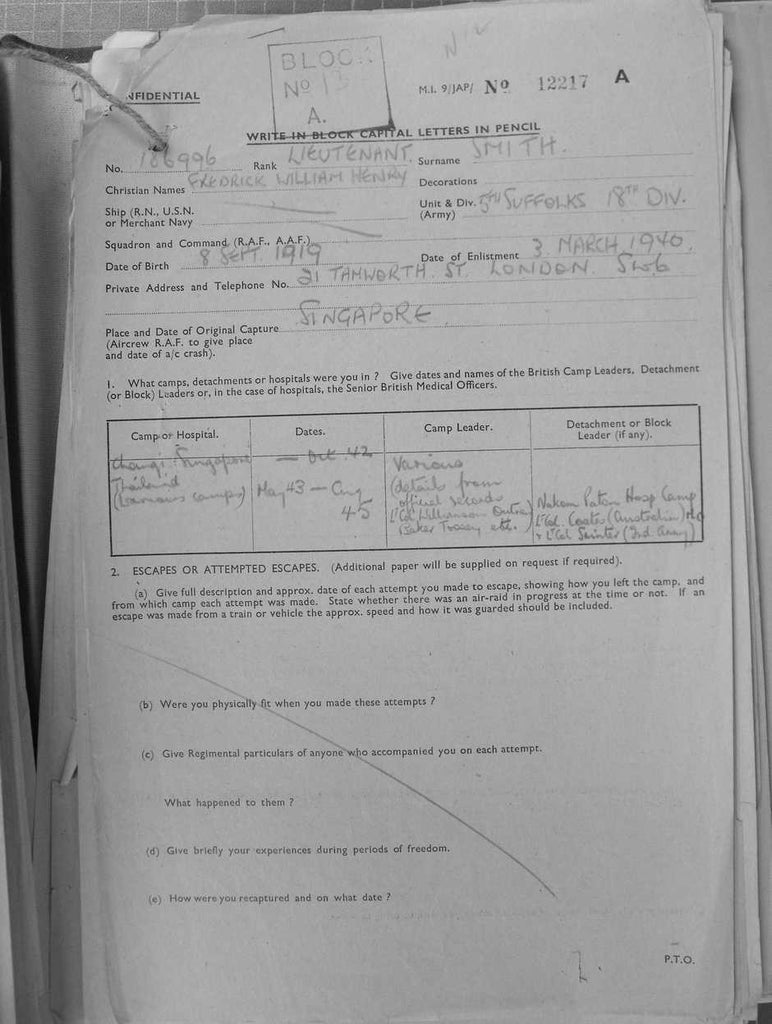 NFIDENTIAL
BLOCK
No 13
A.
M.I. 9/JAP/ No 12217 A
WRITE IN BLOCK CAPITAL LETTERS IN PENCIL
No. 186996 Rank LIEUTENANT Surname SMITH.
Christian Names FREDRICK WILLIAM HENRY Decorations
Ship (R.N., U.S.N. or Merchant Navy
Unit & Div. (Army) 5TH SUFFOLKS 18TH DIV.
Squadron and Command (R.A.F., A.A.F.)
Date of Birth 8 SEPT. 1919 Date of Enlistment 3 MARCH 1940.
Private Address and Telephone No. 21 TAMWORTH ST. LONDON SW6
Place and Date of Original Capture SINGAPORE
(Aircrew R.A.F. to give place
and date of a/c crash).
1. What camps, detachments or hospitals were you in ? Give dates and names of the British Camp Leaders, Detachment
(or Block) Leaders or, in the case of hospitals, the Senior British Medical Officers.
Camp or Hospital. Dates. Camp Leader. Detachment or Block Leader (if any).
Changi Singapore — Oct 42
Thailand
(various camps)
May 43 — Aug
45
Various
(details from
official records
Lt Col Williamson
etc.)
Nakom Paton Hosp Camp
Lt Col. Coates (Australian)
2. ESCAPES OR ATTEMPTED ESCAPES. (Additional paper will be supplied on request if required).
(a) Give full description and approx. date of each attempt you made to escape, showing how you left the camp, and
from which camp each attempt was made. State whether there was an air-raid in progress at the time or not. If an
escape was made from a train or vehicle the approx. speed and how it was guarded should be included.
(b) Were you physically fit when you made these attempts ?
(c) Give Regimental particulars of anyone who accompanied you on each attempt.
What happened to them ?
(d) Give briefly your experiences during periods of freedom.
(e) How were you recaptured and on what date ?
P.T.O.